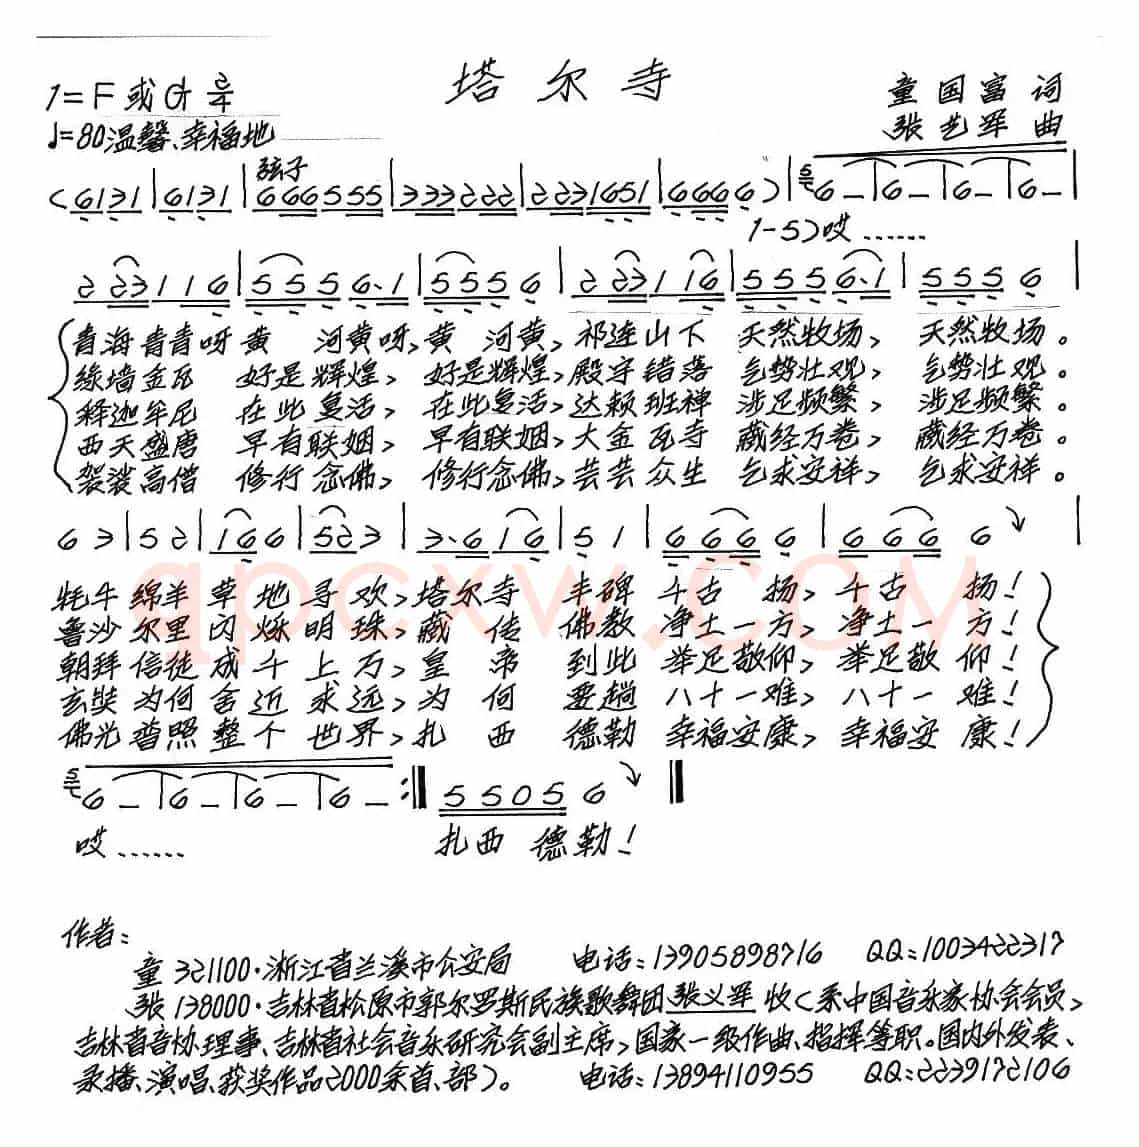 塔尔寺
1=F或G 2/4
童国富 词
♩=80温馨、幸福地
张艺军 曲
弦子
(6131|6131|666555|333222|2231651|6666)|56-|6-|6-|6-|
1-5)哎……
223116|5556·1|5556|223116|55556·1|5556|
青海青青呀黄 河黄呀,黄 河黄,祁连山下 天然牧场, 天然牧场。
绿墙金瓦 好是辉煌, 好是辉煌,殿宇错落 气势壮观, 气势壮观。
释迦牟尼 在此复活, 在此复活,达赖班禅 涉足频繁, 涉足频繁。
西天盛唐 早有联姻, 早有联姻,大金瓦寺 藏经万卷, 藏经万卷。
袈裟高僧 修行念佛, 修行念佛,芸芸众生 乞求安祥, 乞求安祥。
63|52|166|523|3·616|51|6666|6666|
牦牛绵羊草地寻欢,塔尔寺 丰碑 千古 扬,千古 扬!
鲁沙尔里闪烁明珠,藏 传 佛教 净土一方,净土一 方!
朝拜信徒成千上万,皇 帝 到此 举足敬仰,举足敬 仰!
玄奘为何舍近求远,为 何 要趟 八十一难,八十一 难!
佛光普照整个世界,扎 西 德勒 幸福安康,幸福安 康!
56-|6-|6-|6-:‖55056‖
哎…… 扎西 德勒!
qpcxw.com
作者:
童 321100·浙江省兰溪市公安局 电话:13905898716 QQ:1003422317
张 138000·吉林省松原市郭尔罗斯民族歌舞团张义军 收(系中国音乐家协会会员,
吉林省音协理事、吉林省社会音乐研究会副主席,国家一级作曲、指挥等职。国内外发表、
录播、演唱、获奖作品2000余首、部)。 电话:13894110955 QQ:2239172106